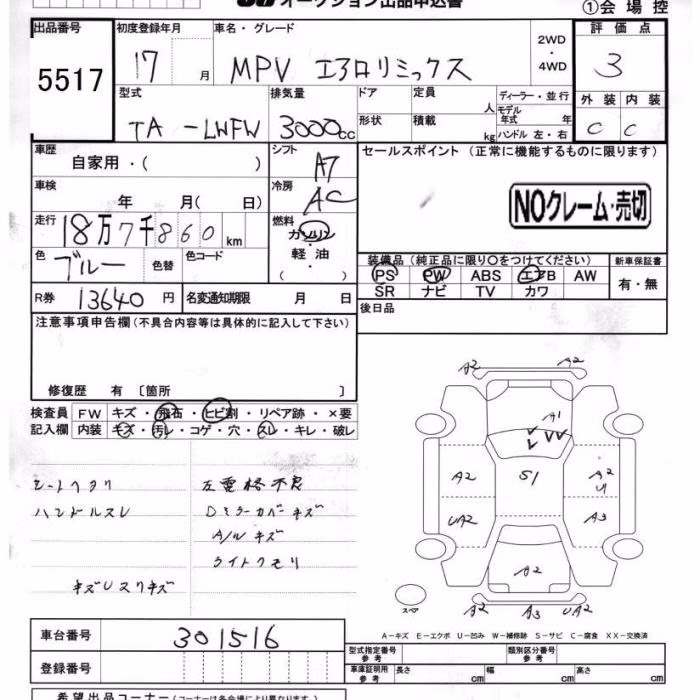 オークション出品申込書 ①会場控
出品番号 初度登録年月 車名・グレード 評価点
5517 17 月 MPV エアロリミックス 2WD ・ 4WD 3
型式 排気量 ドア 定員 人 ディーラー・並行 外装 内装
TA-LWFW 3000cc 形状 積載 kg モデル年式 年 ハンドル 左・右 C C
車歴 自家用・( ) シフト A7 セールスポイント (正常に機能するものに限ります)
車検 年 月( 日) 冷房 AC
NOクレーム・売切
走行 18万7千860km 燃料 ガソリン・軽油 ( )
色 ブルー 色替 色コード
装備品 (純正品に限り○をつけてください) 新車保証書
PS PW ABS エアB AW 有・無
SR ナビ TV カワ
R券 13640円 名変通知期限 月 日
後日品
注意事項申告欄 (不具合内容等は具体的に記入して下さい)
修復歴 有 〔箇所 〕
検査員 FW キズ・飛石・ヒビ割・リペア跡・×要
記入欄 内装 キズ・汚レ・コゲ・穴・スレ・キレ・破レ
シートヘタリ 左電格不良
ハンドルスレ Dミラーカバーキズ
A/Wキズ
ライトクモリ
キズUスリキズ
A2 A2
A1
A2 S1 A2 U1
UA2 A3
A2
スペア A2 A3 UA2
A-キズ E-エクボ U-凹み W-補修跡 S-サビ C-腐食 XX-交換済
車台番号 301516
型式指定番号 参考 類別区分番号 参考
登録番号 車庫証明用 参考 長さ cm 幅 cm 高さ cm
希望出品コーナー (コーナーは各会場により異なります)